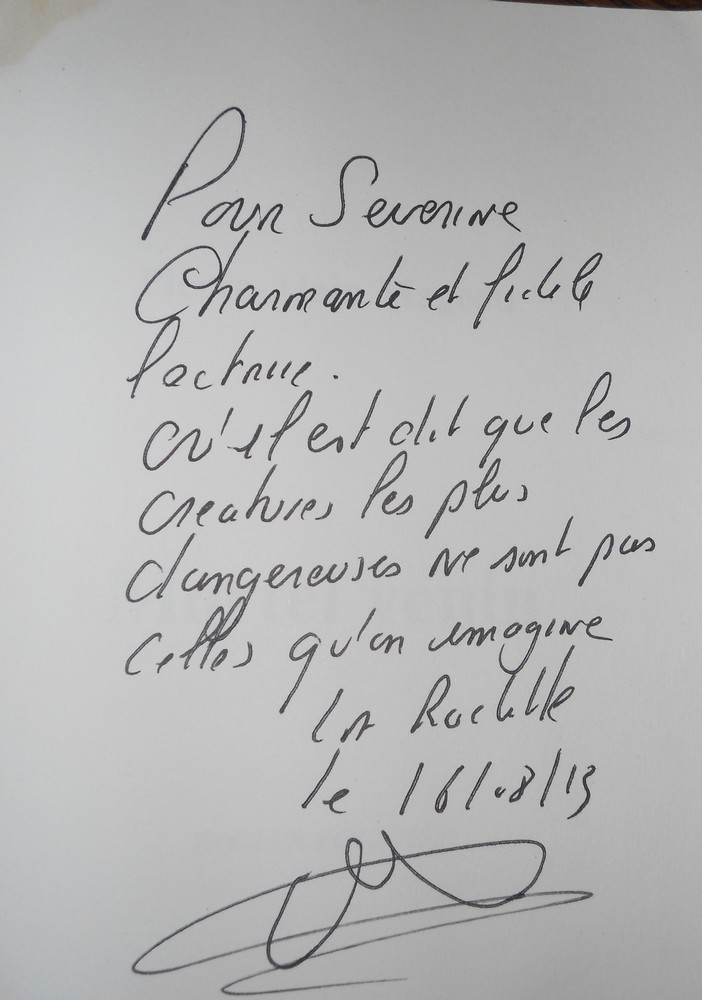 Pour Severine
Charmante et fidele
lectrice.
Où il est dit que les
creatures les plus
dangereuses ne sont pas
celles qu'on imagine
La Rochelle
le 16/08/13